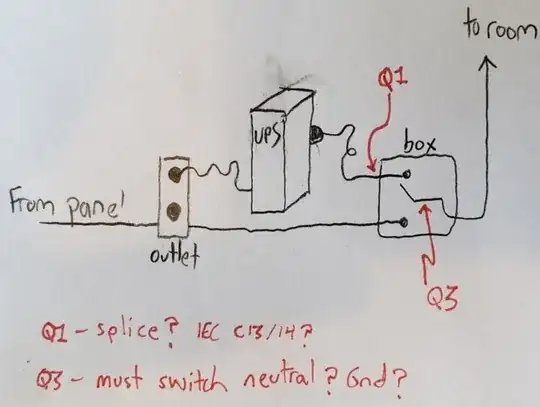 to room
Q1
UPS
box
From panel
outlet
Q3
Q1 - splice? IEC C13/14?
Q3 - must switch neutral? Gnd?